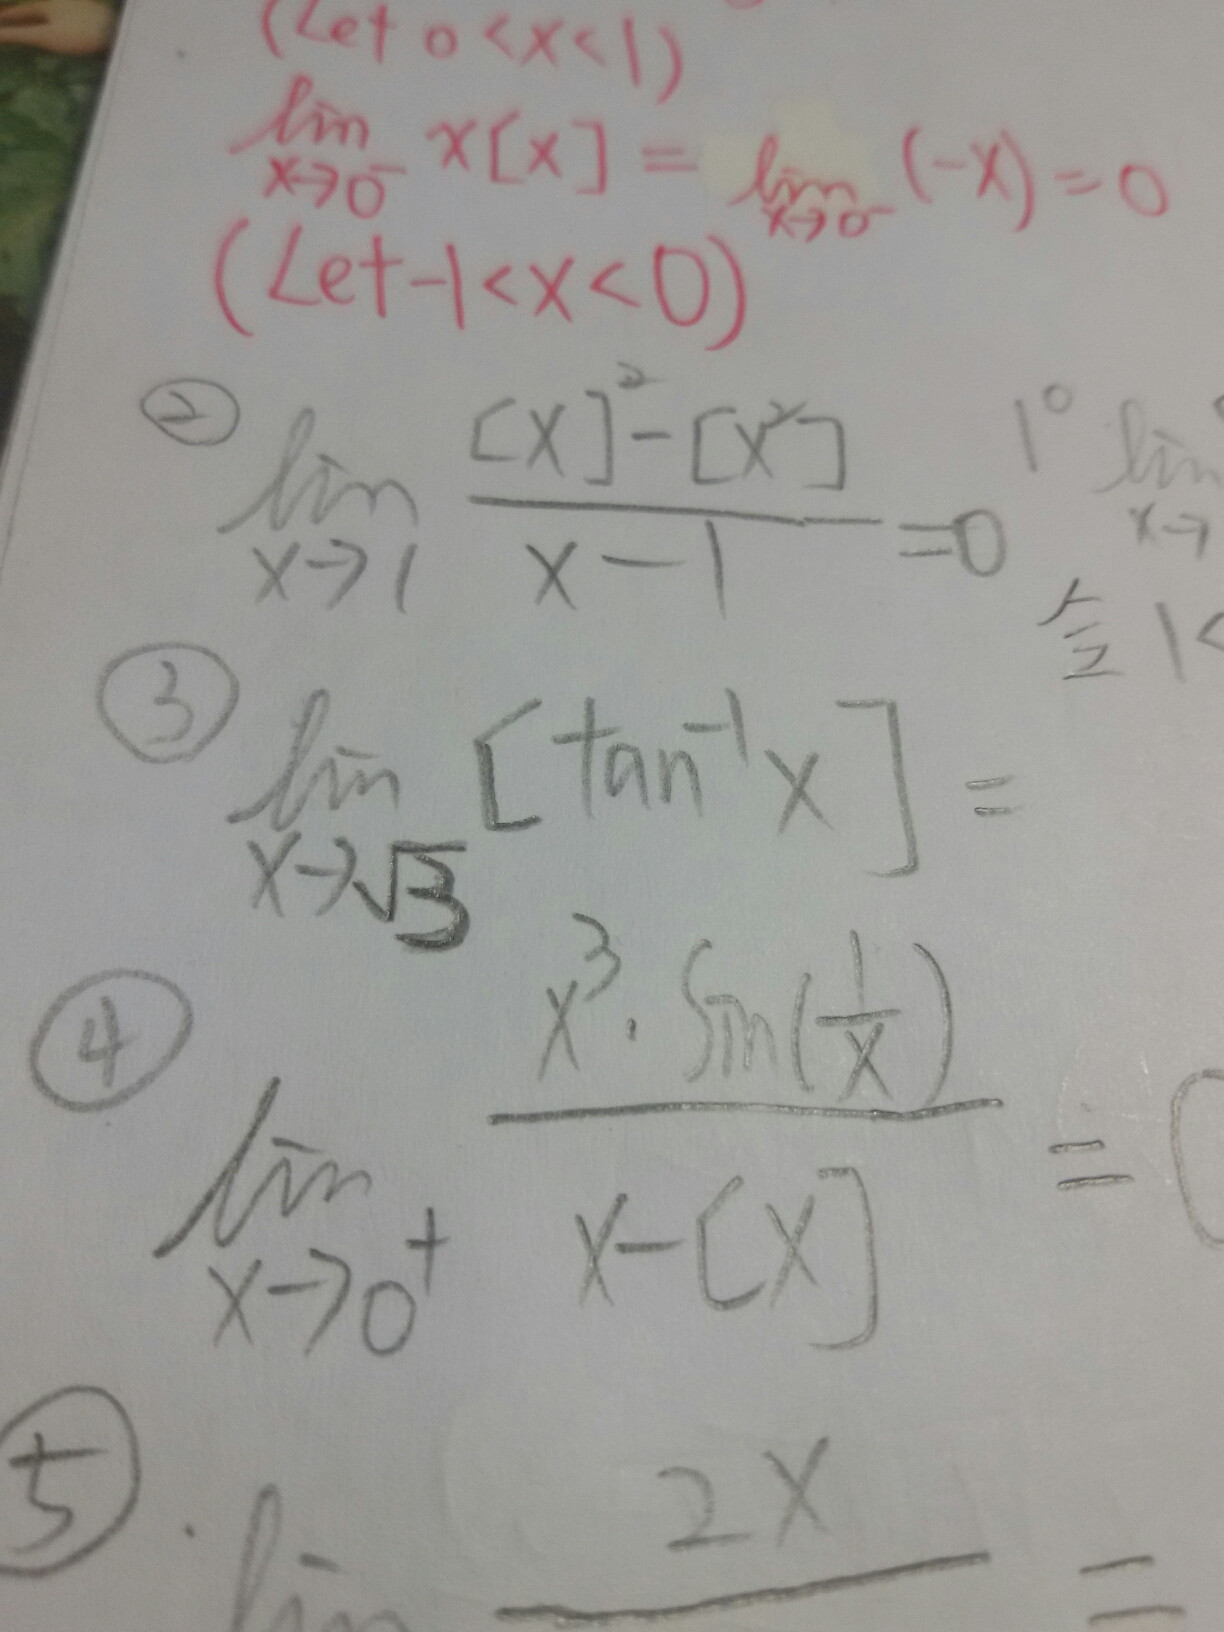 (Let 0<x<1)
lim x→0⁻ x[x] = lim x→0⁻ (-x) = 0
(Let -1<x<0)
② lim x→1 ([x]² - [x²]) / (x-1) = 0
1° lim x→
令 1<
③ lim x→√3 [tan⁻¹x] =
④ lim x→0⁺ (x³·sin(1/x)) / (x-[x]) = 0
⑤ lim 2x =